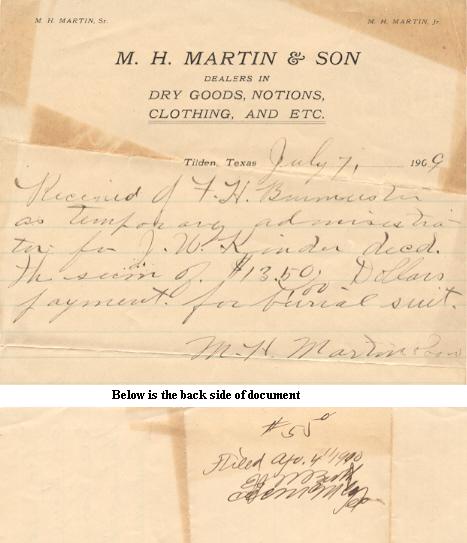 M. H. MARTIN, Sr.
M. H. MARTIN, Jr.
M. H. MARTIN & SON
DEALERS IN
DRY GOODS, NOTIONS,
CLOTHING, AND ETC.
Tilden, Texas July 7, 1909
Received of F. H. Burmeister
as temporary administra-
tor for J. W. Kinder decd.
the sum of $13.50, Dollars
payment for burial suit.
M. H. Martin & Son
Below is the back side of document
Filed